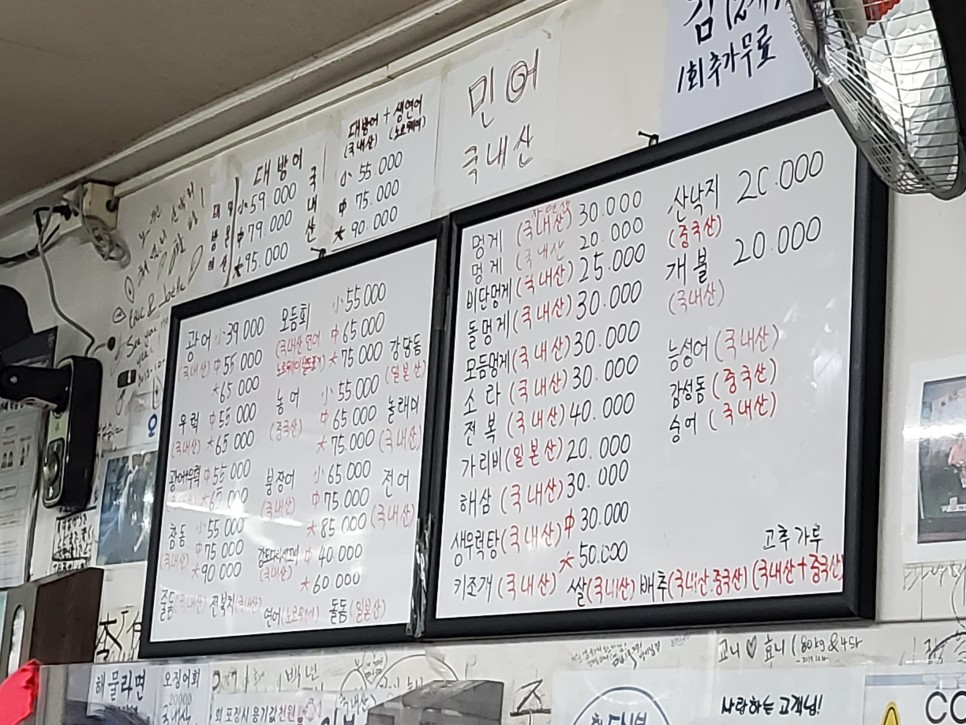 1회 추가무료
민어
국내산
대방어 + 생연어
(국내산) (노르웨이)
小 55.000
中 75.000
大 90.000
대방어 국내산
小 59.000
中 79.000
大 95.000
광어 小 39.000
(국내산) 中 55.000
大 65.000
우럭 中 55.000
(국내산) 大 65.000
광어+우럭 中 55.000
大 65.000
참돔 小 55.000
(국내산) 中 75.000
大 90.000
줄돔(국내산) 전복치(국내산)
모듬회 小 55.000
中 65.000
大 75.000
농어 小 55.000
(중국산) 中 65.000
大 75.000
붕장어 小 65.000
(국내산) 中 75.000
大 85.000
中 40.000
(국내산)
大 60.000
연어(노르웨이) 돌돔(일본산)
감담돔
(일본산)
놀래미
(국내산)
전어
(국내산)
멍게 (국내산) 30.000
멍게 (국내산) 20.000
비단멍게(국내산) 25.000
돌멍게(국내산) 30.000
모듬멍게(국내산) 30.000
소라(국내산) 30.000
전복(국내산) 40.000
가리비(일본산) 20.000
해삼(국내산) 30.000
생우럭탕(국내산) 中 30.000
大 50.000
키조개(국내산) 쌀(국내산) 배추(국내산.중국산) (국내산+중국산)
고추가루
산낙지 20.000
(중국산)
개불 20.000
(국내산)
능성어(국내산)
감성돔(중국산)
숭어(국내산)
고니♡효니
해물라면
오징어회
국내산
사랑하는 고객님!
CC